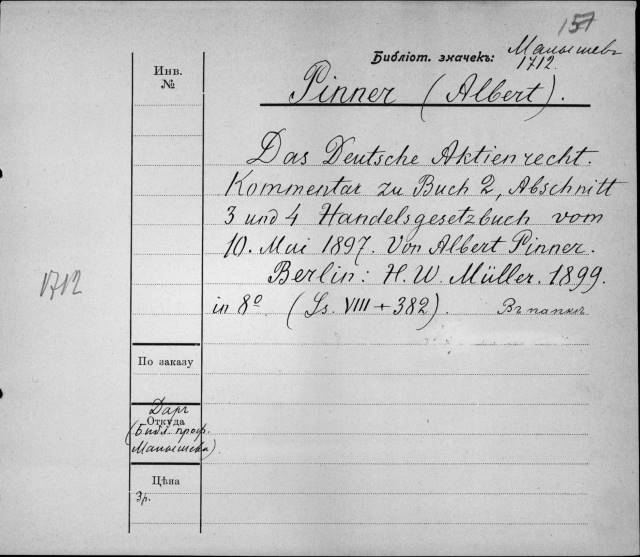 157
Библіот. значекъ: Малышевъ
1712.
Инв.
№
Pinner (Albert).
Das Deutsche Aktienrecht.
Kommentar zu Buch 2, Abschnitt
3 und 4 Handelsgesetzbuch vom
10. Mai 1897. Von Albert Pinner.
Berlin: H. W. Müller. 1899.
in 8º (Ss. VIII + 382). Въ папкѣ
1712
По заказу
Даръ
Откуда
(Библ. проф.
Малышева)
Цѣна
3р.